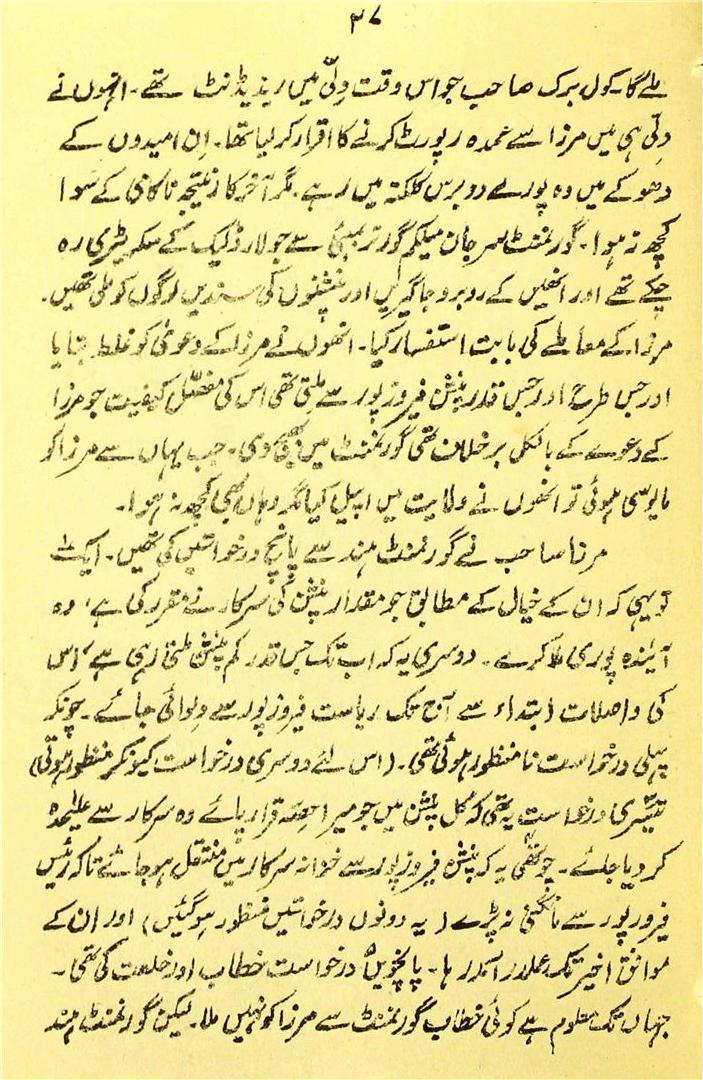 ۳۷
ملے گا۔ کول برک صاحب جو اس وقت دِلّی میں ریذیڈنٹ تھے۔ انہوں نے
دِلّی ہی میں مرزا سے عمدہ رپورٹ کرنے کا اقرار کر لیا تھا۔ اِن امیدوں کے
دھوکے میں وہ پورے دو برس کلکتہ میں رہے۔ مگر آخر کار نتیجہ ناکامی کے سوا
کچھ نہ ہوا۔ گورنمنٹ سر جان میلکم گورنر بمبئی سے جو لارڈ لیک کے سکریٹری رہ
چکے تھے اور انھیں کے روبرو جاگیریں اور پنشنوں کی سندیں لوگوں کو ملی تھیں۔
مرزا کے معاملے کی بابت استفسار کیا۔ انھوں نے مرزا کے دعویٰ کو غلط بتایا
اور جس طرح اور جس قدر پنشن فیروز پور سے ملتی تھی اس کی مفصّل کیفیت جو مرزا
کے دعوے کے بالکل برخلاف تھی گورنمنٹ میں بھیج دی۔ جب یہاں سے مرزا کو
مایوسی ہوئی تو انھوں نے ولایت میں اپیل کیا مگر وہاں بھی کچھ نہ ہوا۔
مرزا صاحب نے گورنمنٹ ہند سے پانچ درخواستیں کی تھیں۔ ایک
تو یہی کہ ان کے خیال کے مطابق جو مقدار پنشن کی سرکار نے مقرر کی ہے، وہ
آیندہ پوری ملا کرے۔ دوسری یہ کہ اب تک جس قدر کم پنشن ملتی رہی ہے، اس
کی واصلات ابتداء سے آج تک ریاست فیروز پور سے دِلوائی جائے۔ چونکہ
پہلی درخواست نامنظور ہوئی تھی۔ (اس لئے دوسری درخواست کیونکر منظور ہوتی)
تیسری درخواست یہ تھی کہ کل پنشن میں جو میرا حصّہ قرار پائے وہ سرکار سے علیٰحدہ
کر دیا جائے۔ چوتھی یہ کہ پنشن فیروز پور سے خزانہ سرکار میں منتقل ہو جائے تاکہ رئیس
فیروز پور سے مانگنی نہ پڑے (یہ دونوں درخواستیں منظور ہو گئیں) اور ان کے
موافق اخیر تک عملدرآمد رہا۔ پانچویں درخواست خطاب اور خلعت کی تھی۔
جہاں تک معلوم ہے کوئی خطاب گورنمنٹ سے مرزا کو نہیں ملا۔ لیکن گورنمنٹ ہند